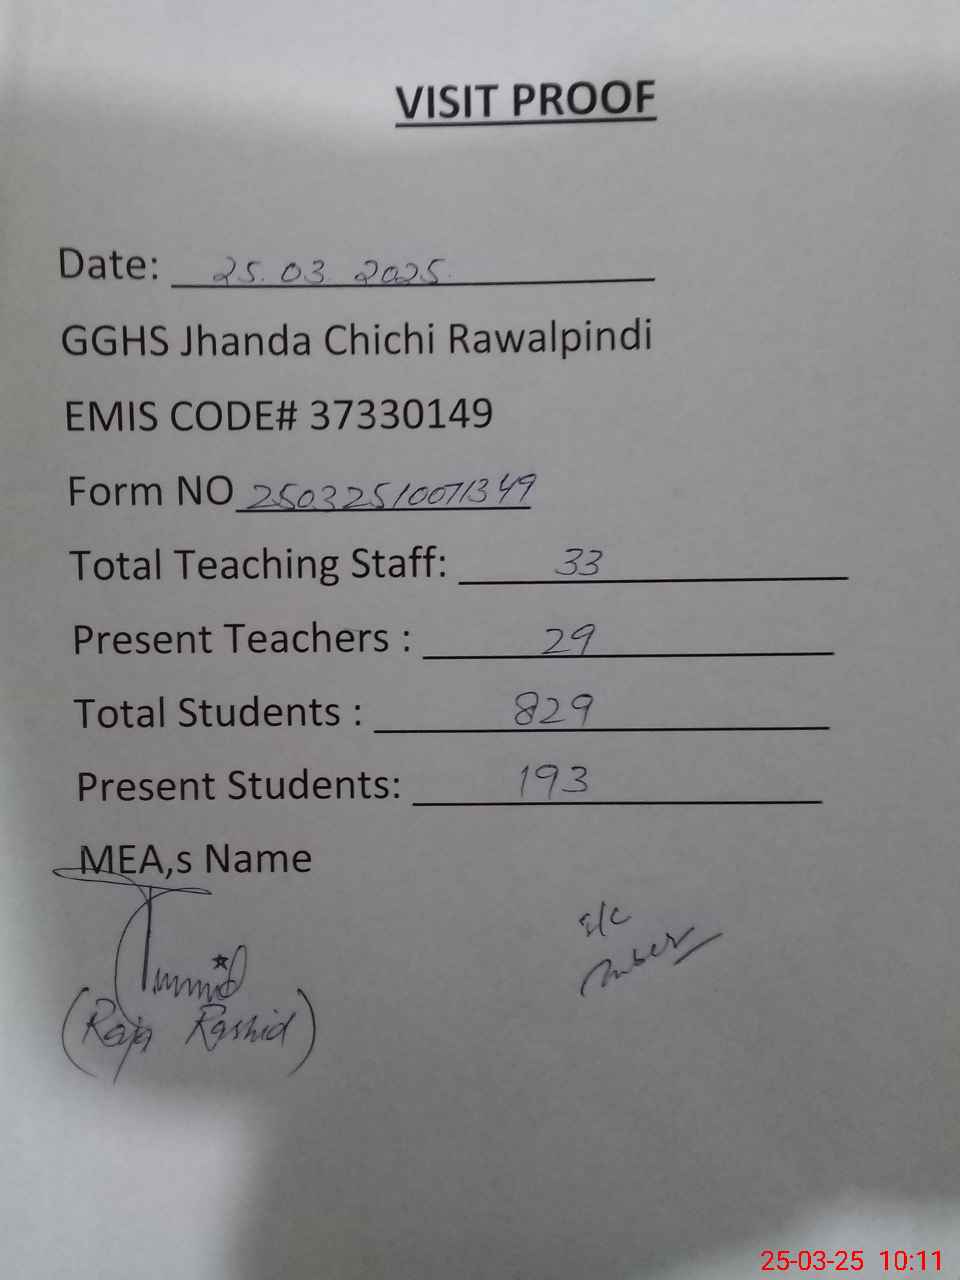 VISIT PROOF
Date: 25.03.2025.
GGHS Jhanda Chichi Rawalpindi
EMIS CODE# 37330149
Form NO 25032510071349
Total Teaching Staff: 33
Present Teachers : 29
Total Students : 829
Present Students: 193
MEA,s Name
(Raja Rashid)
25-03-25 10:11